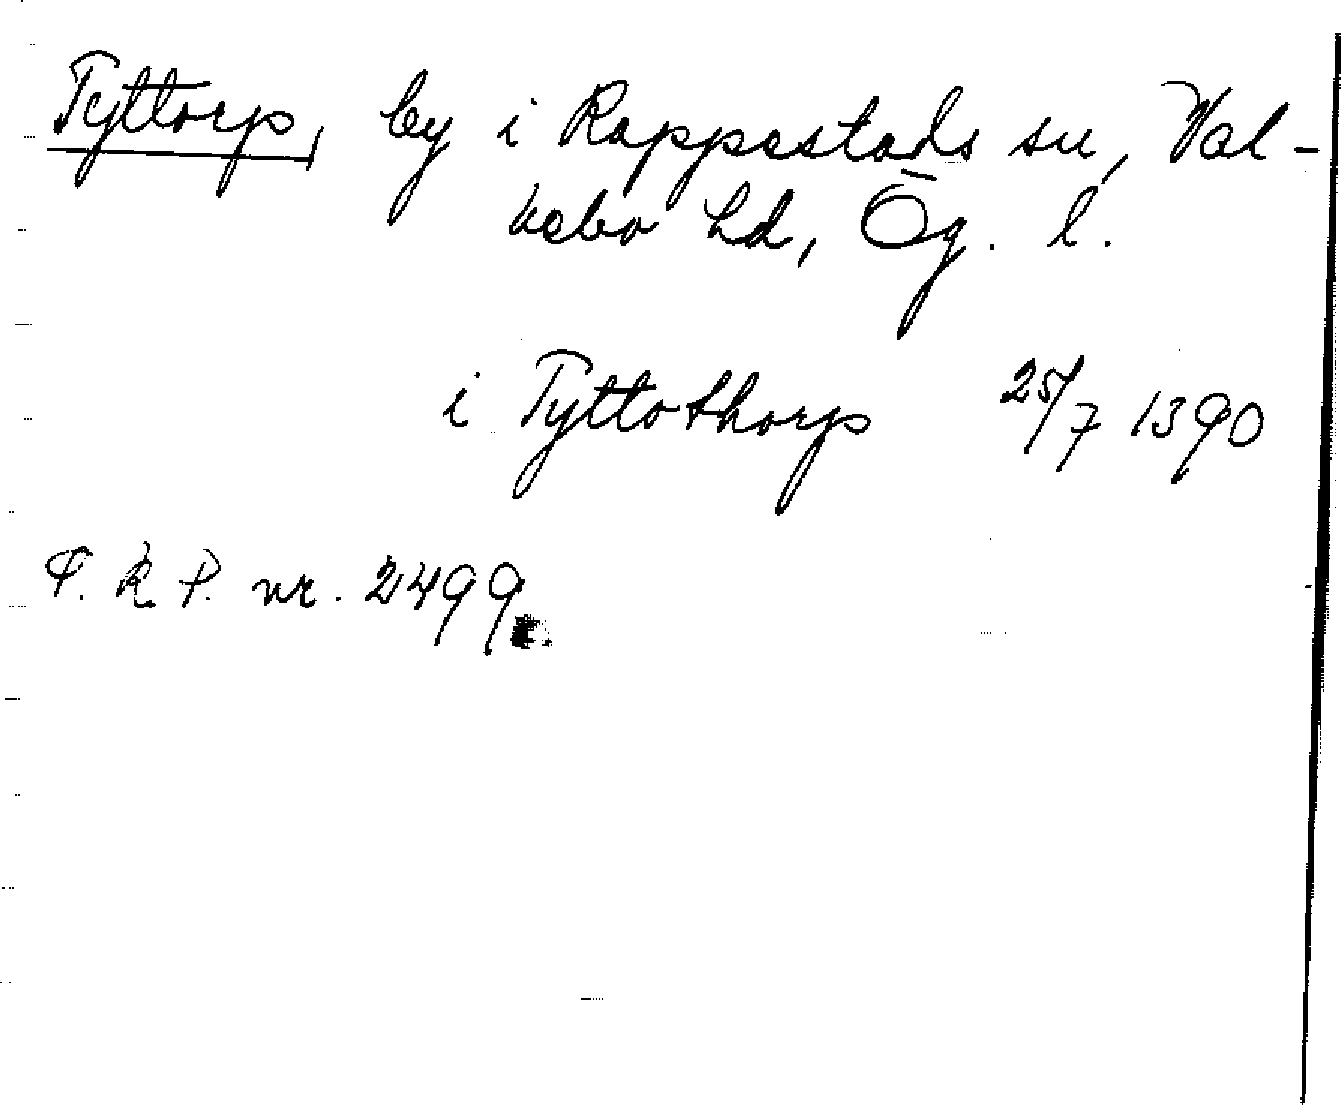 Tyttorp, by i Rappestads sn, Val-
kebo hd, Ög. l.
i Tyttothorp 25/7 1390
P. R P. nr. 2499.